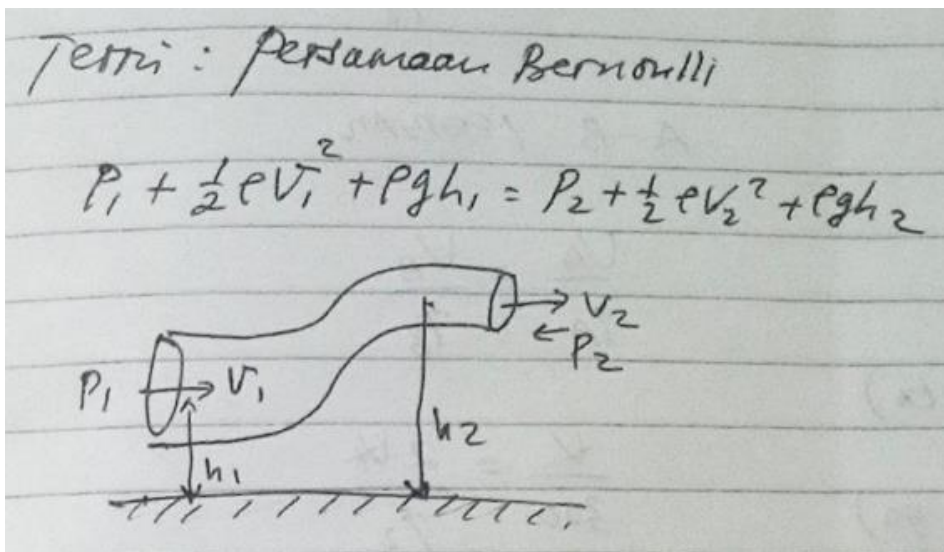 Temi : Persamaan Bernoulli
P₁ + ½ρV₁² + ρgh₁ = P₂ + ½ρV₂² + ρgh₂
V₂
P₂
P₁
V₁
h₂
h₁